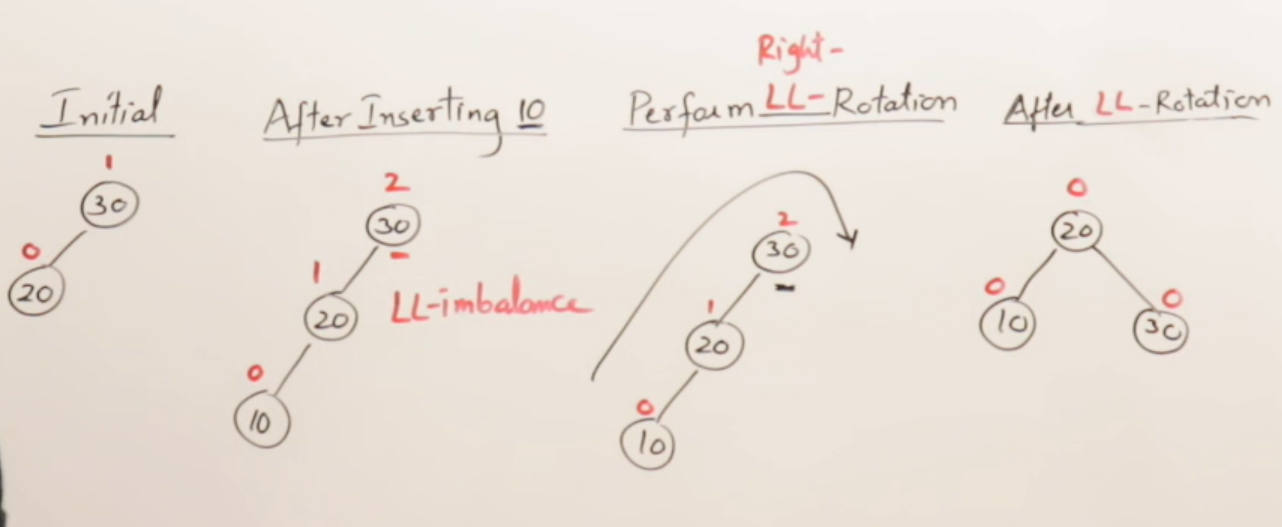 Initial
1
30
0
20
After Inserting 10
2
30
1
20
LL-imbalance
0
10
Right-
Perform LL-Rotation
2
30
1
20
0
10
After LL-Rotation
0
20
0
10
0
30